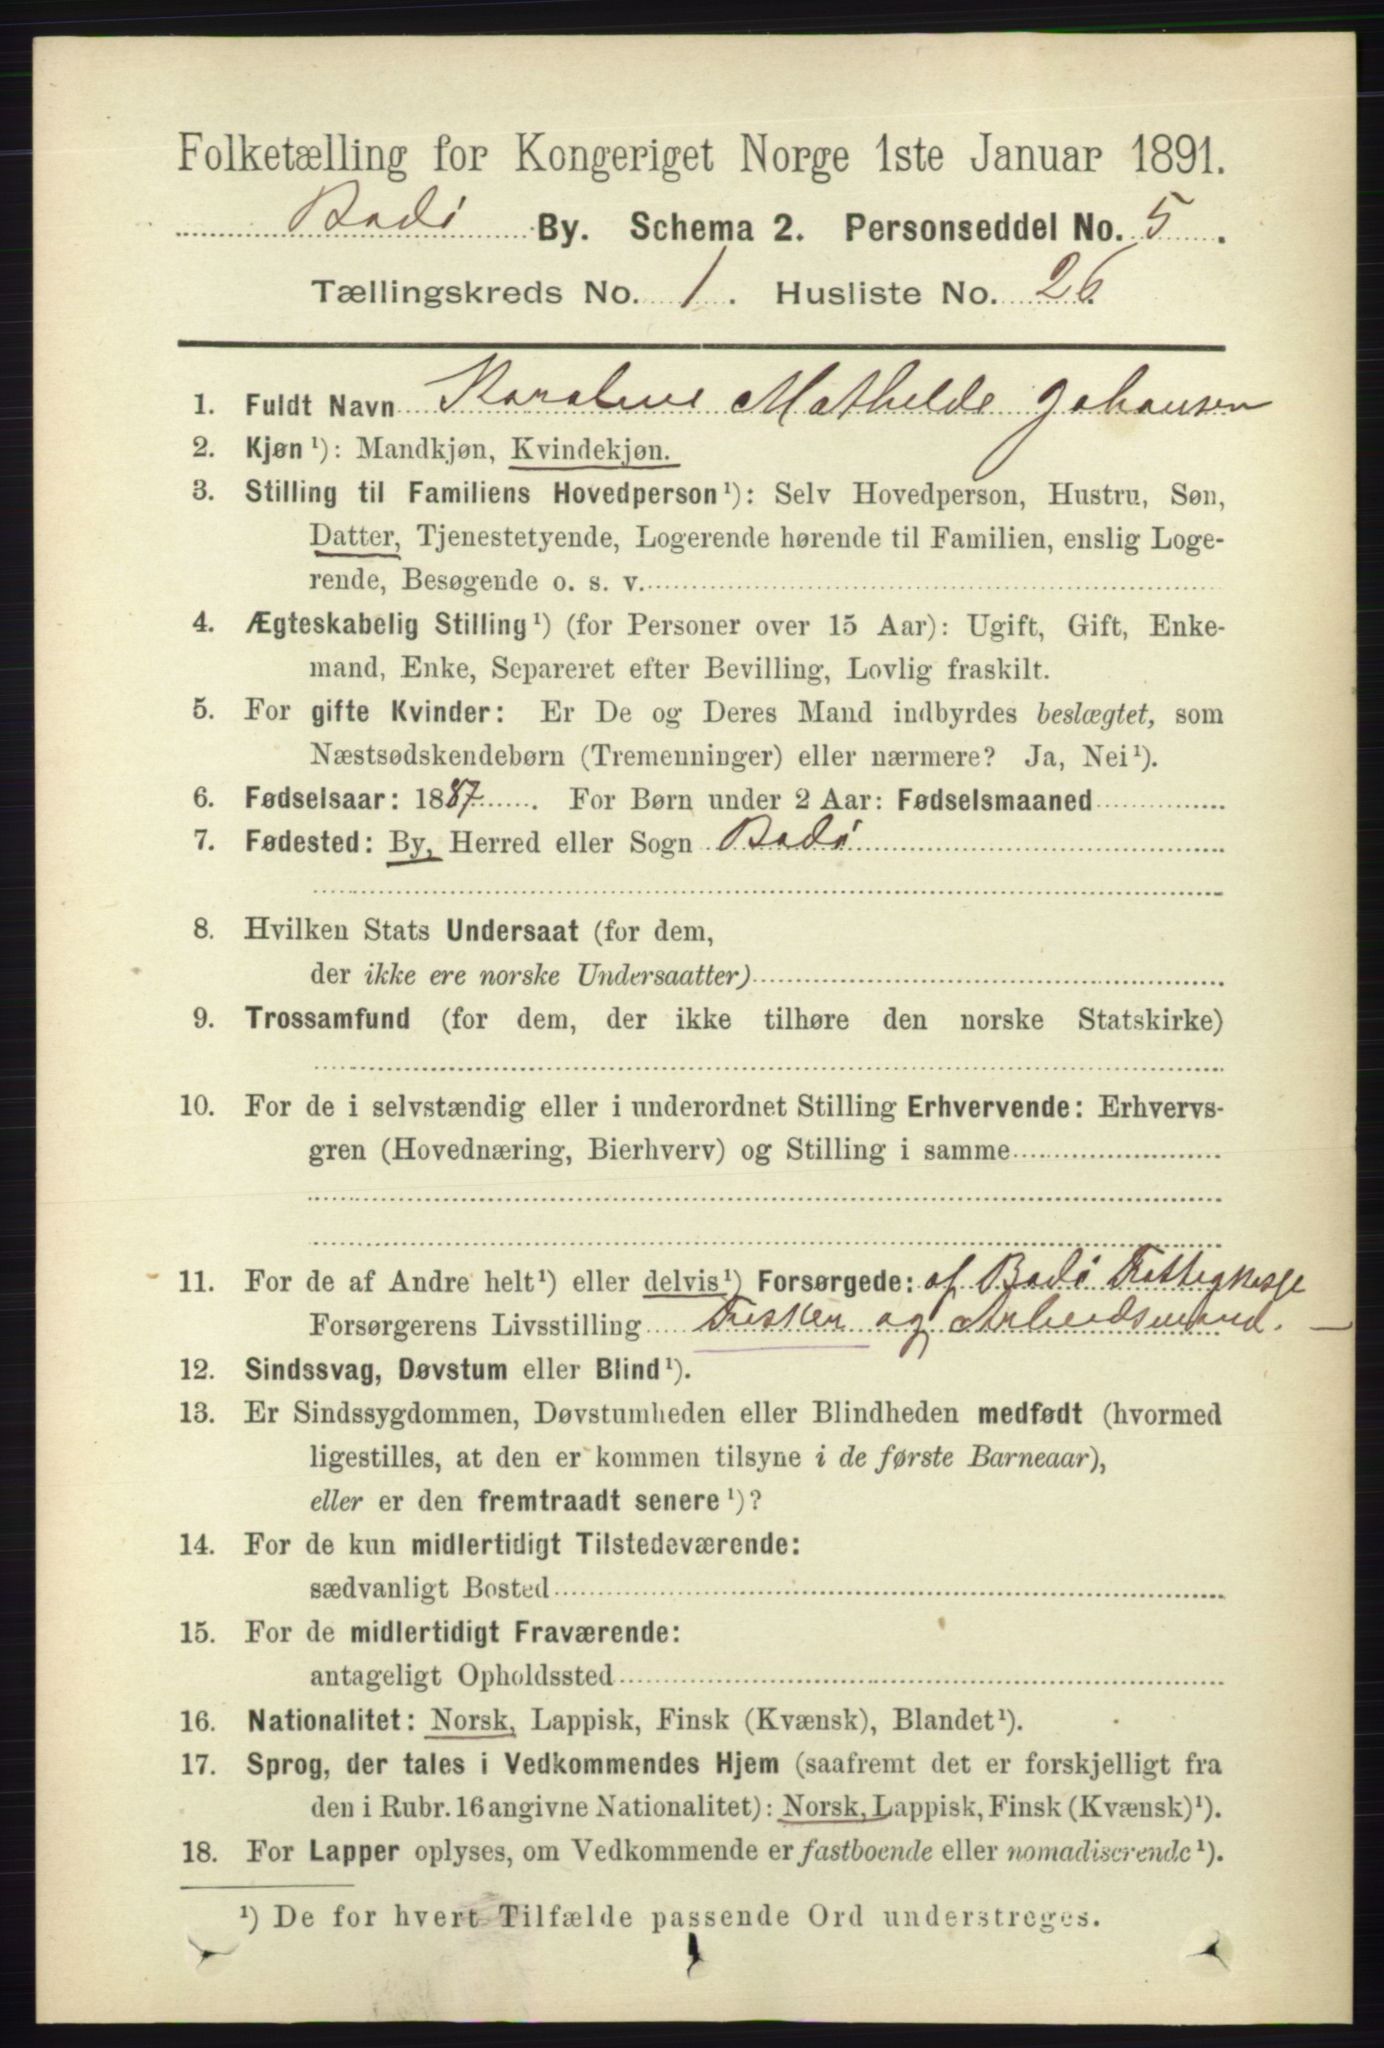 Folketælling for Kongeriget Norge 1ste Januar 1891.
Bodø By. Schema 2. Personseddel No. 5.
Tællingskreds No. 1. Husliste No. 26.
1. Fuldt Navn Karoline Mathilde Johansen
2. Kjøn¹): Mandkjøn, Kvindekjøn.
3. Stilling til Familiens Hovedperson¹): Selv Hovedperson, Hustru, Søn,
Datter, Tjenestetyende, Logerende hørende til Familien, enslig Loge-
rende, Besøgende o. s. v.
4. Ægteskabelig Stilling¹) (for Personer over 15 Aar): Ugift, Gift, Enke-
mand, Enke, Separeret efter Bevilling, Lovlig fraskilt.
5. For gifte Kvinder: Er De og Deres Mand indbyrdes beslægtet, som
Næstsødskendebørn (Tremenninger) eller nærmere? Ja, Nei¹).
6. Fødselsaar: 1887. For Børn under 2 Aar: Fødselsmaaned
7. Fødested: By, Herred eller Sogn Bodø
8. Hvilken Stats Undersaat (for dem,
der ikke ere norske Undersaatter)
9. Trossamfund (for dem, der ikke tilhøre den norske Statskirke)
10. For de i selvstændig eller i underordnet Stilling Erhvervende: Erhvervs-
gren (Hovednæring, Bierhverv) og Stilling i samme
11. For de af Andre helt¹) eller delvis¹) Forsørgede: af Bodø Fattigkasse
Forsørgerens Livsstilling Fisker og Arbeidsmand.
12. Sindssvag, Døvstum eller Blind¹).
13. Er Sindssygdommen, Døvstumheden eller Blindheden medfødt (hvormed
ligestilles, at den er kommen tilsyne i de første Barneaar),
eller er den fremtraadt senere¹)?
14. For de kun midlertidigt Tilstedeværende:
sædvanligt Bosted
15. For de midlertidigt Fraværende:
antageligt Opholdssted
16. Nationalitet: Norsk, Lappisk, Finsk (Kvænsk), Blandet¹).
17. Sprog, der tales i Vedkommendes Hjem (saafremt det er forskjelligt fra
den i Rubr. 16 angivne Nationalitet): Norsk, Lappisk, Finsk (Kvænsk)¹).
18. For Lapper oplyses, om Vedkommende er fastboende eller nomadiserende¹).
¹) De for hvert Tilfælde passende Ord understreges.